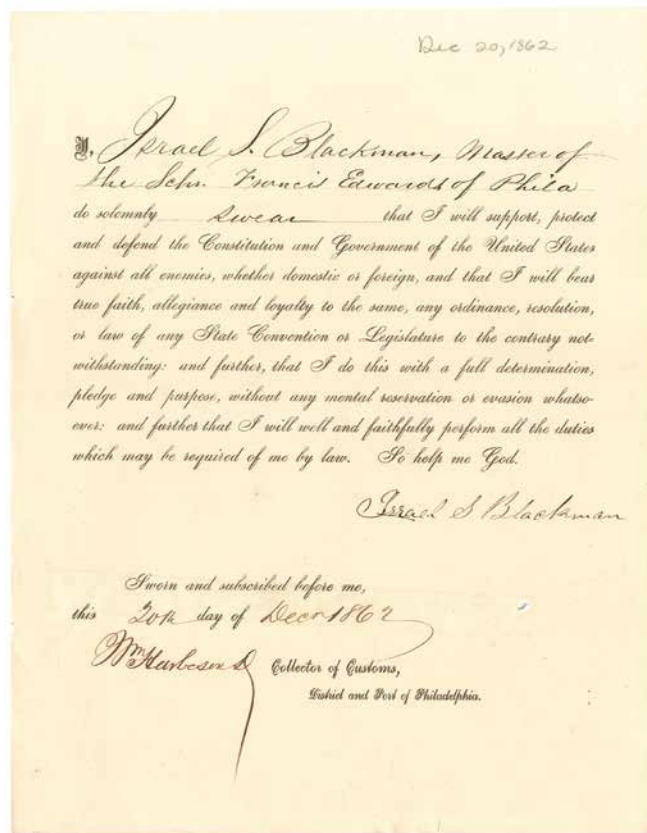 Dec 20, 1862
I, Israel S. Blackman, Master of
the Schr. Francis Edwards of Phila
do solemnly swear that I will support, protect
and defend the Constitution and Government of the United States
against all enemies, whether domestic or foreign, and that I will bear
true faith, allegiance and loyalty to the same, any ordinance, resolution,
or law of any State Convention or Legislature to the contrary not-
withstanding: and further, that I do this with a full determination,
pledge and purpose, without any mental reservation or evasion whatso-
ever: and further that I will well and faithfully perform all the duties
which may be required of me by law. So help me God.
Israel S Blackman
Sworn and subscribed before me,
this 20th day of Decr 1862
Wm Harbeson D Collector of Customs,
District and Port of Philadelphia.